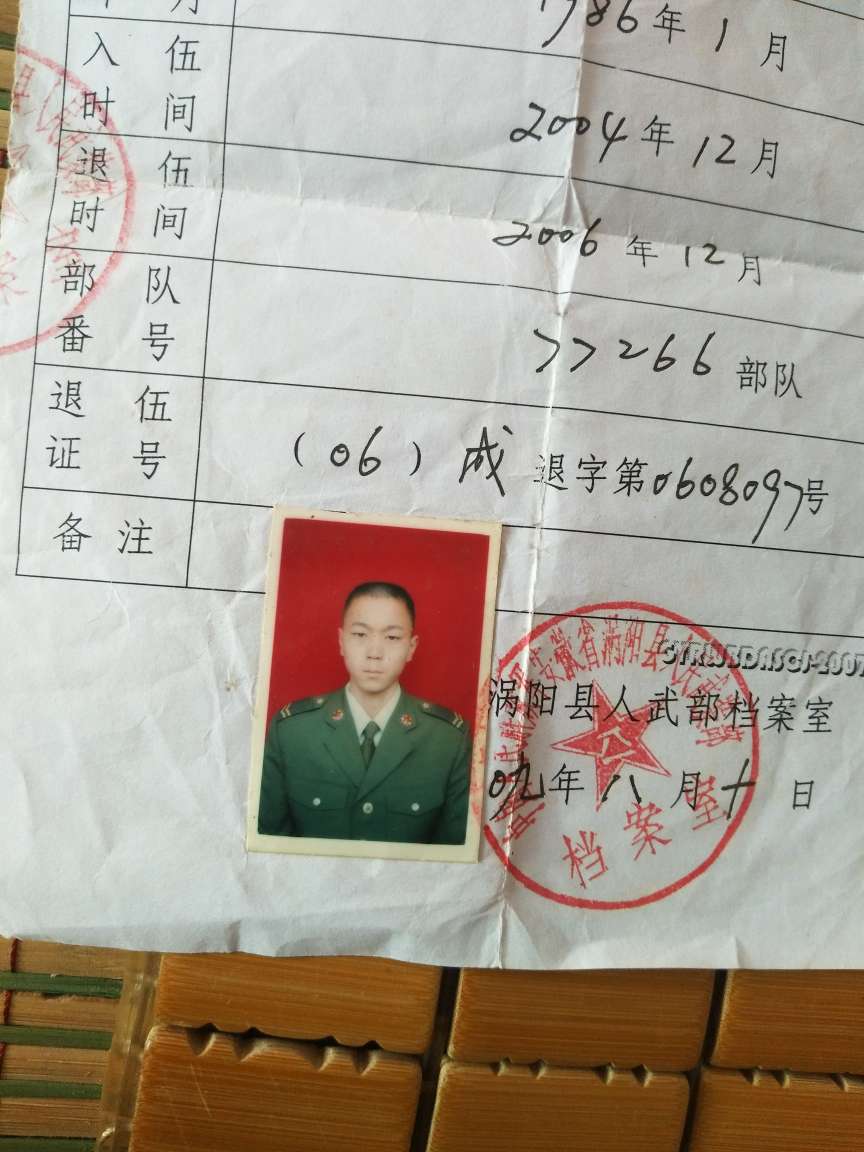 1986年1月
入伍时间 2004年12月
退伍时间 2006年12月
部队番号 77266部队
退伍证号 (06)成退字第0608097号
备注
安徽省涡阳县人民武装部
涡阳县人武部档案室
09年八月十日
档案室